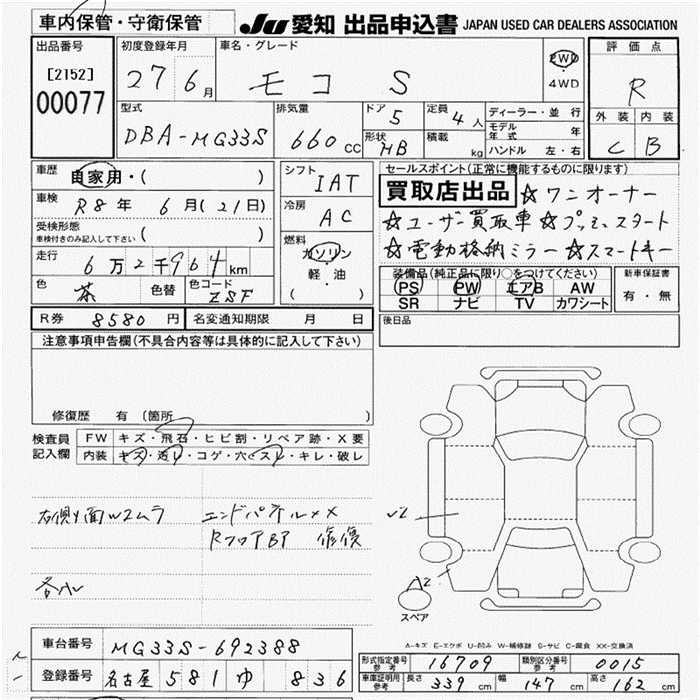 車内保管・守衛保管
JU 愛知 出品申込書 JAPAN USED CAR DEALERS ASSOCIATION
出品番号
[2152]
00077
初度登録年月
27 6月
車名・グレード
モコ S
2WD
4WD
評価点
R
外装 内装
C B
型式
DBA-MG33S
排気量
660 CC
ドア 5
形状 HB
定員 4 人
積載 kg
ディーラー・並行
モデル年式 年
ハンドル 左・右
車歴
自家用・( )
車検
R8年 6月(21日)
受検形態
車検付きのみ記入して下さい ( )
走行
6万2千964km
色 茶
色替
色コード ZSF
シフト
IAT
冷房
AC
燃料
ガソリン
軽・油
( )
セールスポイント(正常に機能するものに限ります)
買取店出品 ☆ワンオーナー
☆ユーザー買取車 ☆プッシュスタート
☆電動格納ミラー ☆スマートキー
装備品(純正品に限り○をつけてください)
PS PW エアB AW
SR ナビ TV カワシート
新車保証書
有・無
R券 8580 円
名変通知期限 月 日
後日品
注意事項申告欄(不具合内容等は具体的に記入して下さい)
修復歴 有(箇所
検査員記入欄
FW キズ・飛石・ヒビ割・リペア跡・X要
内装 キズ・汚レ・コゲ・穴・スレ・キレ・破レ
右側面W2ムラ
エンドパネルXX
RフロアBP 修復
各小
√2
A2
スペア
A-キズ E-エクボ U-凹み W-補修跡 S-サビ C-腐食 XX-交換済
車台番号 MG33S-692388
登録番号 名古屋 581 ゆ 836
型式指定番号 参考 16709
類別区分番号 参考 0015
車庫証明用 参考 長さ 339 cm 幅 147 cm 高さ 162 cm